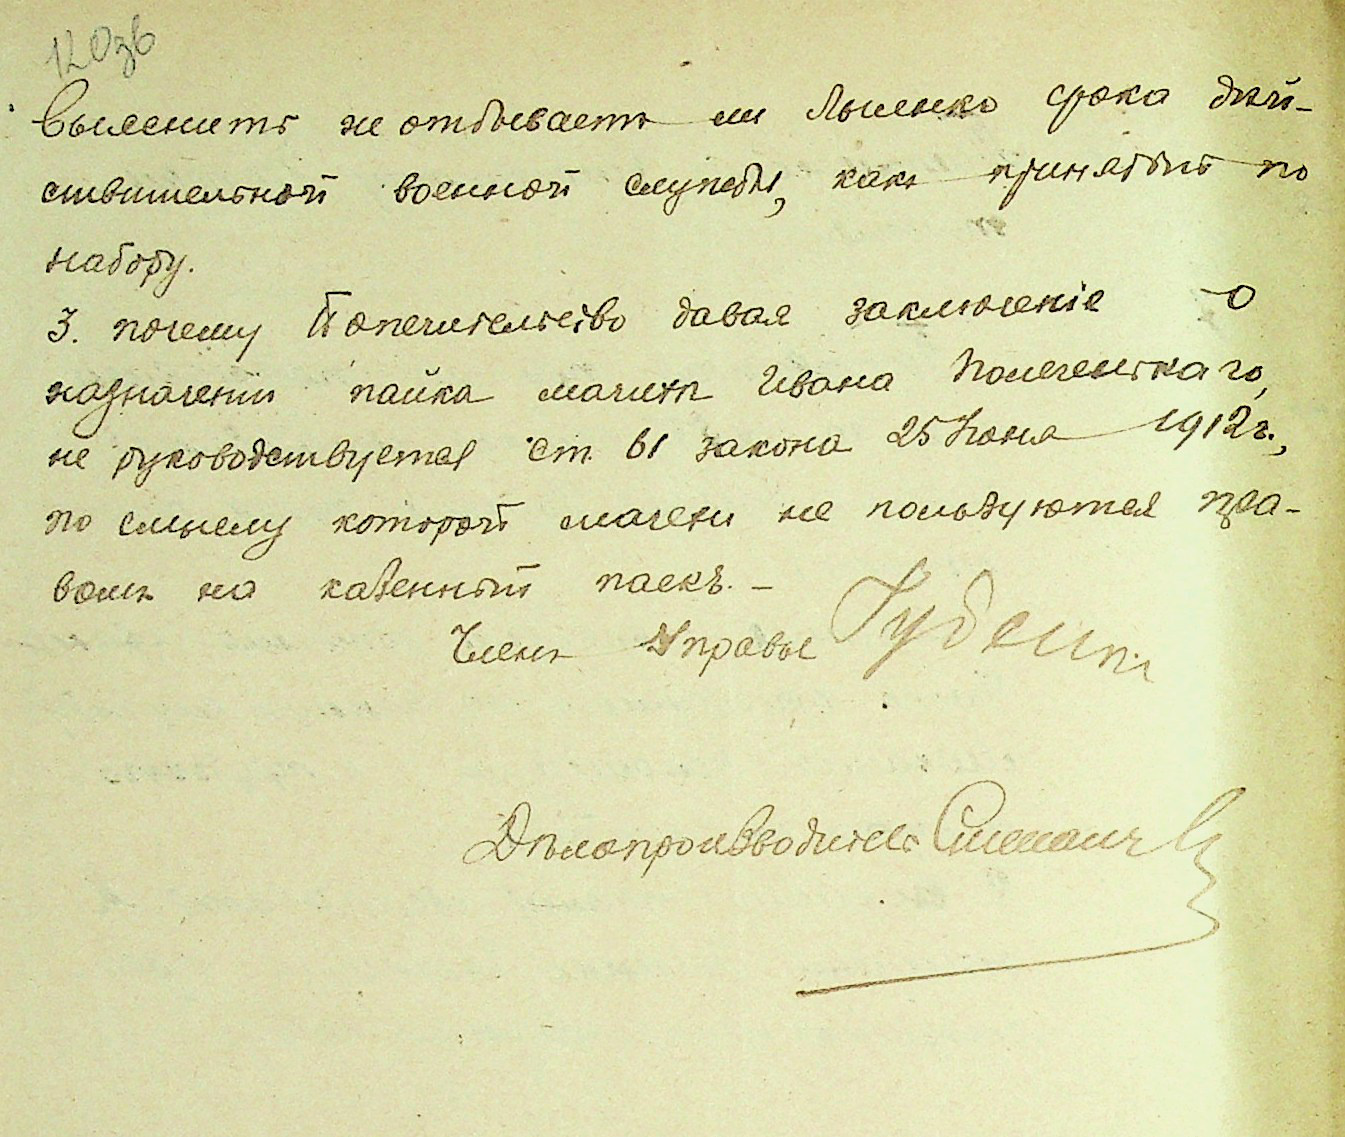 120зв
Выяснить не отбываетъ ли Лысенко срока дѣй-
ствительной военной службы, какъ принятый по
набору.
3. почему Попечительство давая заключеніе о
назначеніи пайка мачихѣ Ивана
не руководствуется ст. 61 закона 25 Іюня 1912г.,
по смыслу которой мачехи не пользуются пра-
вомъ на казенный паекъ. –
Членъ Управы
Дѣлопроизводитель